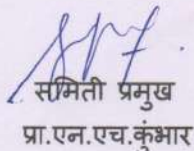 समिती प्रमुख
प्रा.एन.एच.कुंभार